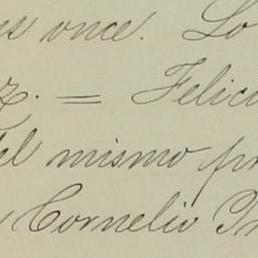 once. Lo
z. = Felici
el mismo
Cornelio